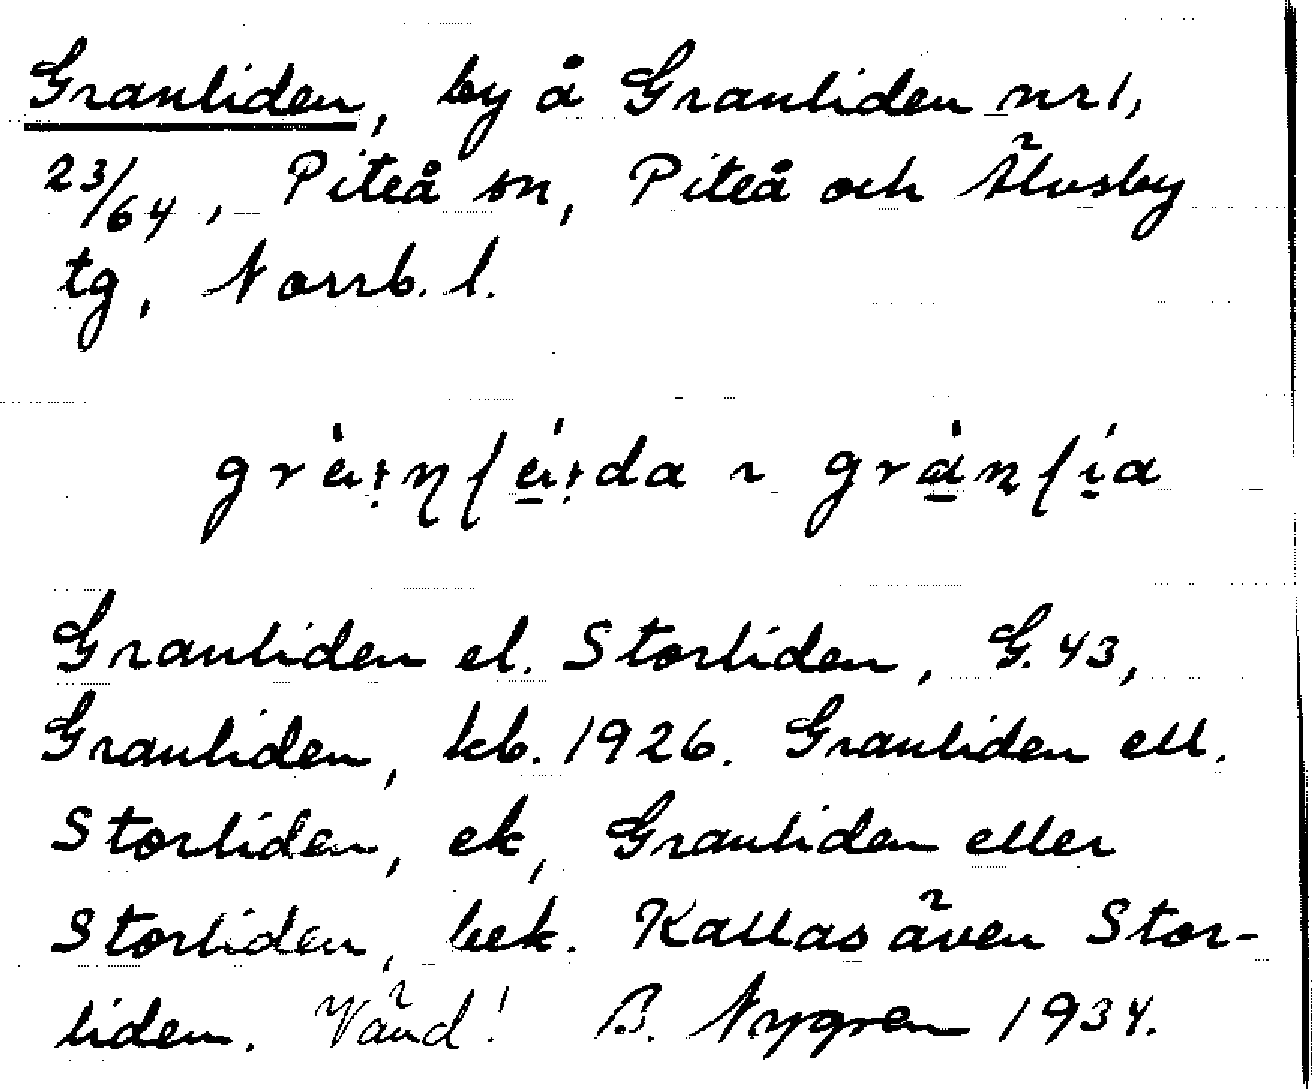 Granliden, by å Granliden nr 1,
23/64, Piteå sn, Piteå och Älvsby
tg, Norrb. l.
Granliden el. Storliden, G. 43,
Granliden, kb. 1926. Granliden ell.
Storliden, ek, Granliden eller
Storliden, bek. Kallas även Stor-
liden. Vänd! B. Nygren 1934.